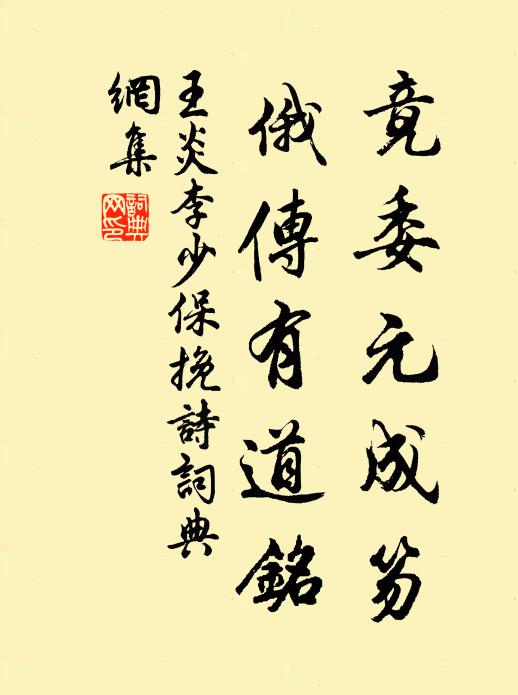 竟委元成笏
俄傳有道銘
王炎李少保挽詩詞典
網集
詞典
网印